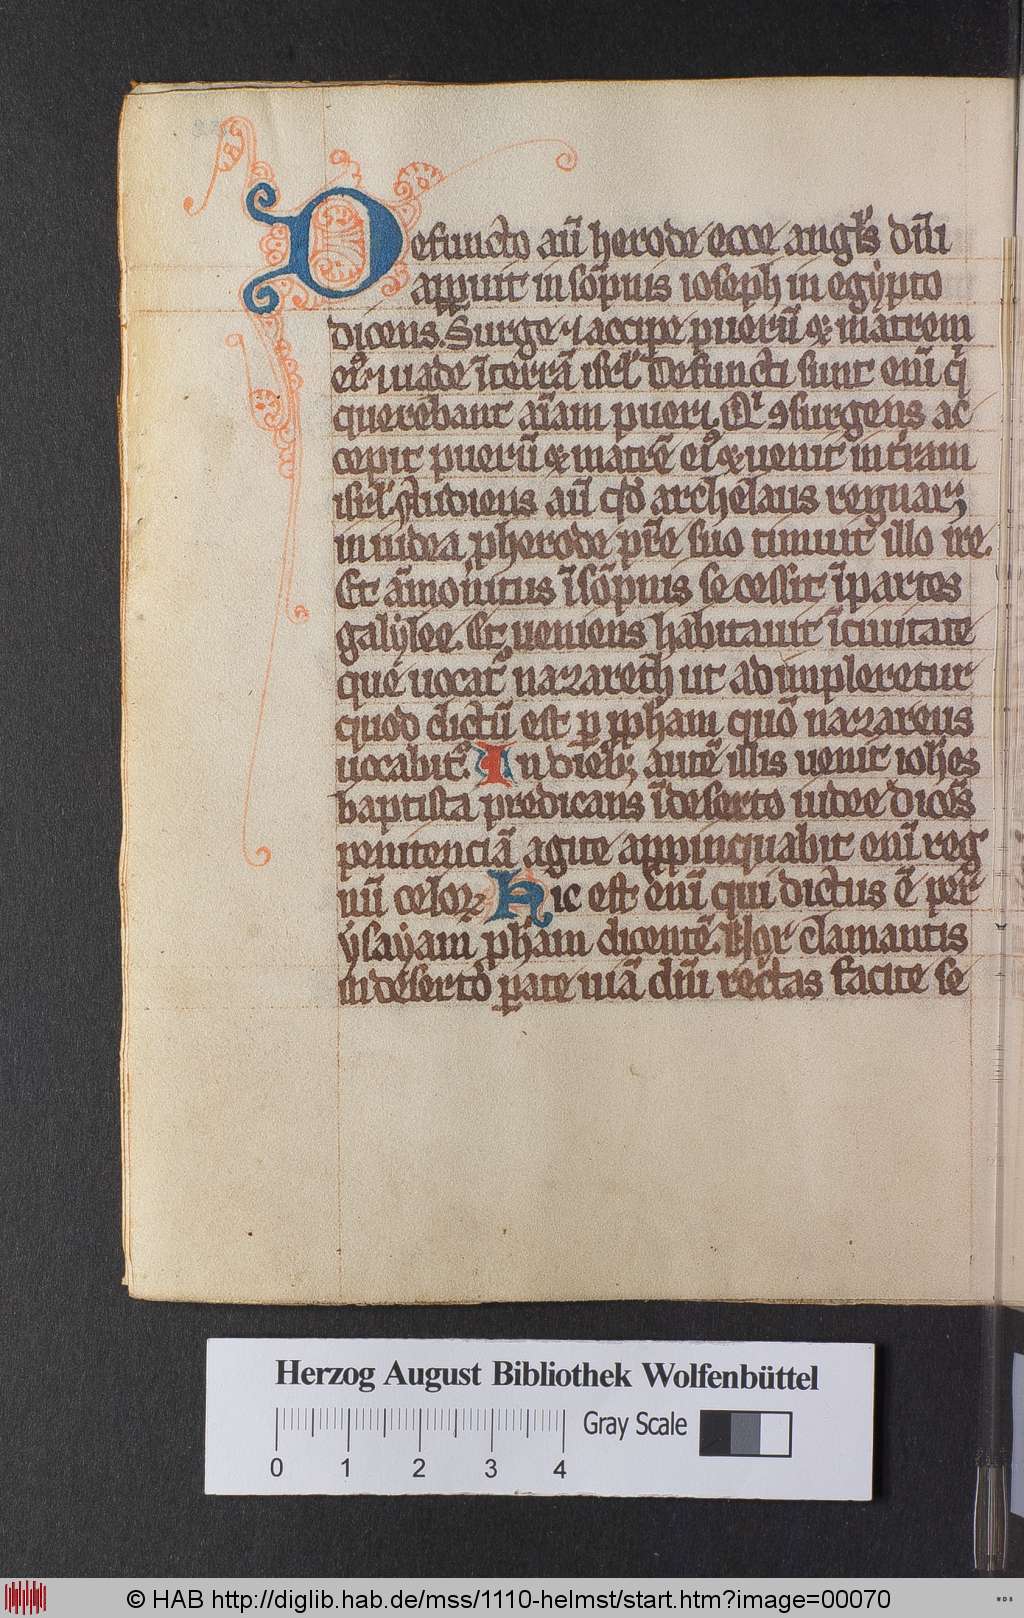 Defuncto aū herode ecce angl̄s dn̄i
apparuit in sōpnis ioseph in egypto
dicens. Surge ⁊ accipe puerū ⁊ matrem
eiꝰ ⁊ uade ī terrā isrl̄ Defuncti sunt enī q̇
querebant aīam pueri. Qͥ ꝯsurgens ac
cepit puerū ⁊ matrē eiꝰ ⁊ uenit in tram
isrl̄. Audiens aū qd̄ archelaus regnarꝫ
in iudea p herode pr̄e suo timuit illo ire.
Et āmonitus ī sōpnis secessit ī partes
galylee. Et ueniens habitauit ī ciuitate
que uocatᷣ nazareth ut adimpleretur
quod dictū est ꝑ ꝓpham quō nazareus
uocabitᷣ. In diebꝫ autē illis uenit ioh̄es
baptista predicans ī deserto iudee dicēs
penitenciā agite appinquabit enī reg
nū celoꝝ Hic est enī qui dictus ē per
ysayam ꝓham dicentē. Uox clamantis
in deserto ꝑate uiā dn̄i rectas facite se
Herzog August Bibliothek Wolfenbüttel
Gray Scale
0 1 2 3 4
© HAB http://diglib.hab.de/mss/1110-helmst/start.htm?image=00070